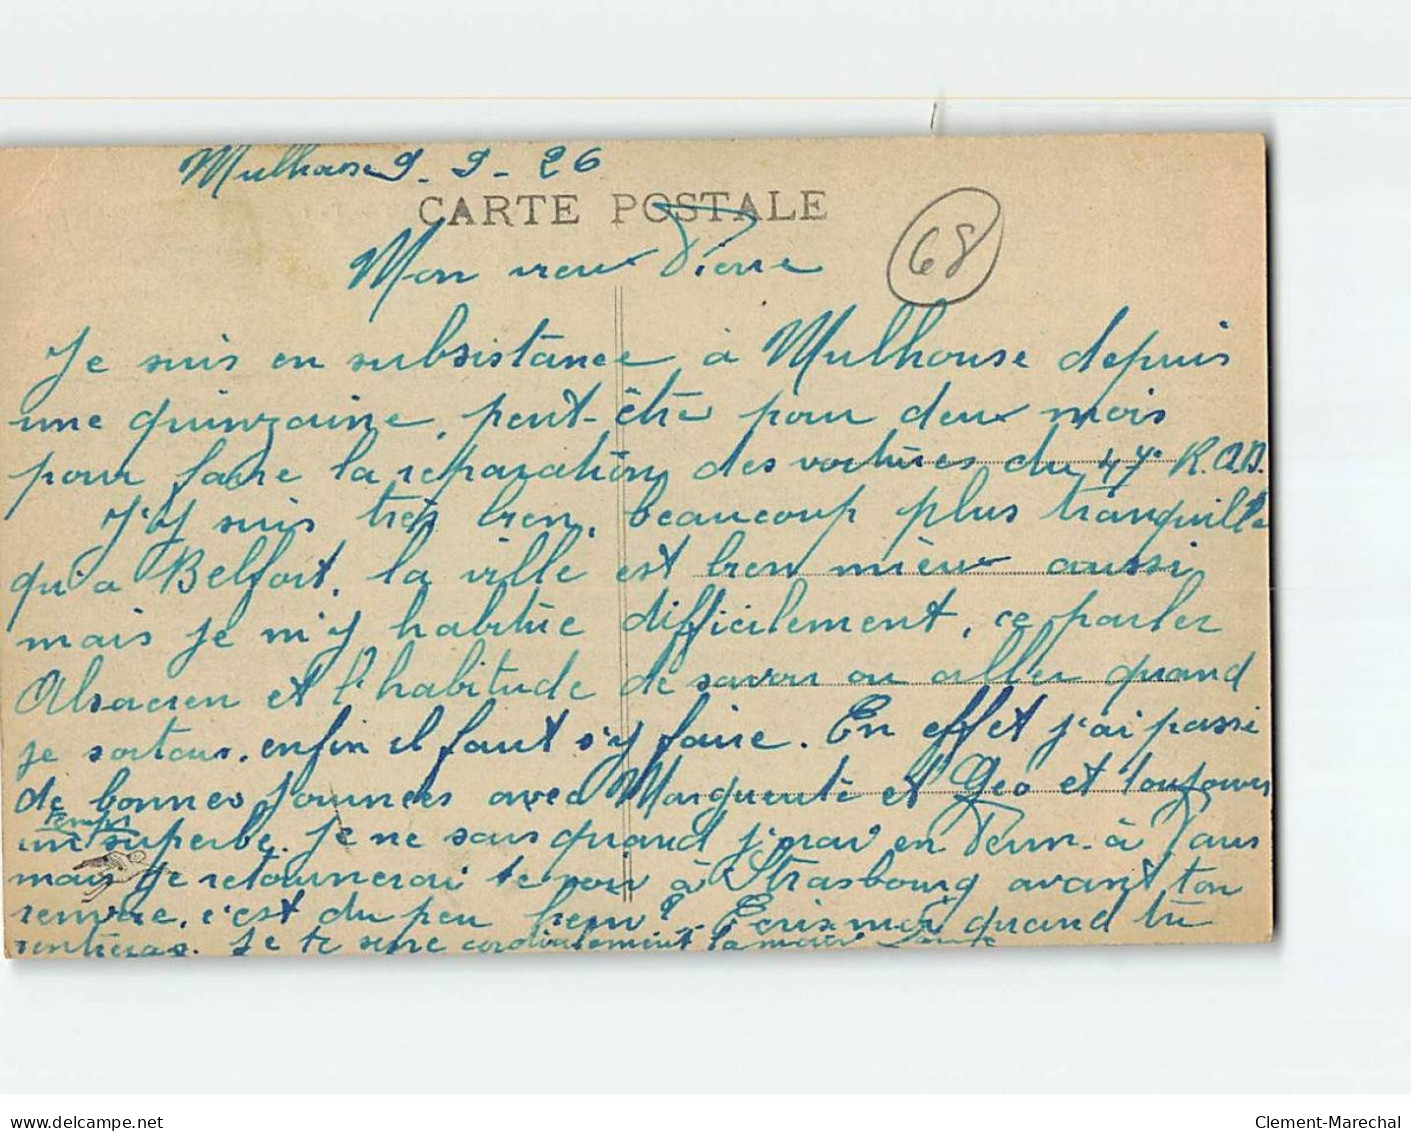 Mulhouse 9-9-26
CARTE POSTALE
68
Mon vieux Pierre
Je suis en subsistance à Mulhouse depuis
une quinzaine, peut-être pour deux mois
pour faire la réparation des voitures du 47e R.A.D.
J'y suis très bien, beaucoup plus tranquille
qu'a Belfort, la ville est bien mieux aussi
mais je m'y habitue difficilement, ce parler
Alsacien et l'habitude de savoir ou aller quand
je sortais. enfin il faut s'y faire. En effet j'ai passé
de bonnes journées avec Marguerite et Géo et toujours
temps
un superbe. Je ne sais quand j'irai en Perm. à Paris
mais je retournerai te voir à Strasbourg avant ton
c'est du peu bien? Ecris moi quand tu
rentreras. Je te serre cordialement la main
delcampe.net
Clement-Marechal